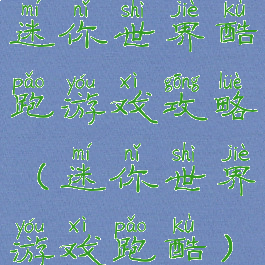 mí nǐ shì jiè kù
迷你世界酷
pǎo yóu xì gōng lüè
跑游戏攻略
mí nǐ shì jiè
(迷你世界
yóu xì pǎo kù
游戏跑酷)